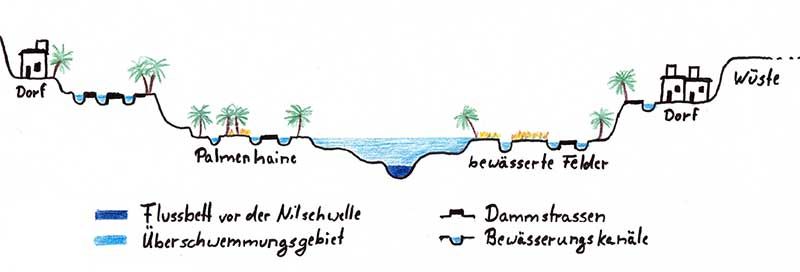 Wüste
Dorf
Dorf
Palmenhaine
bewässerte Felder
Flussbett vor der Nilschwelle
Überschwemmungsgebiet
Dammstrassen
Bewässerungskanäle